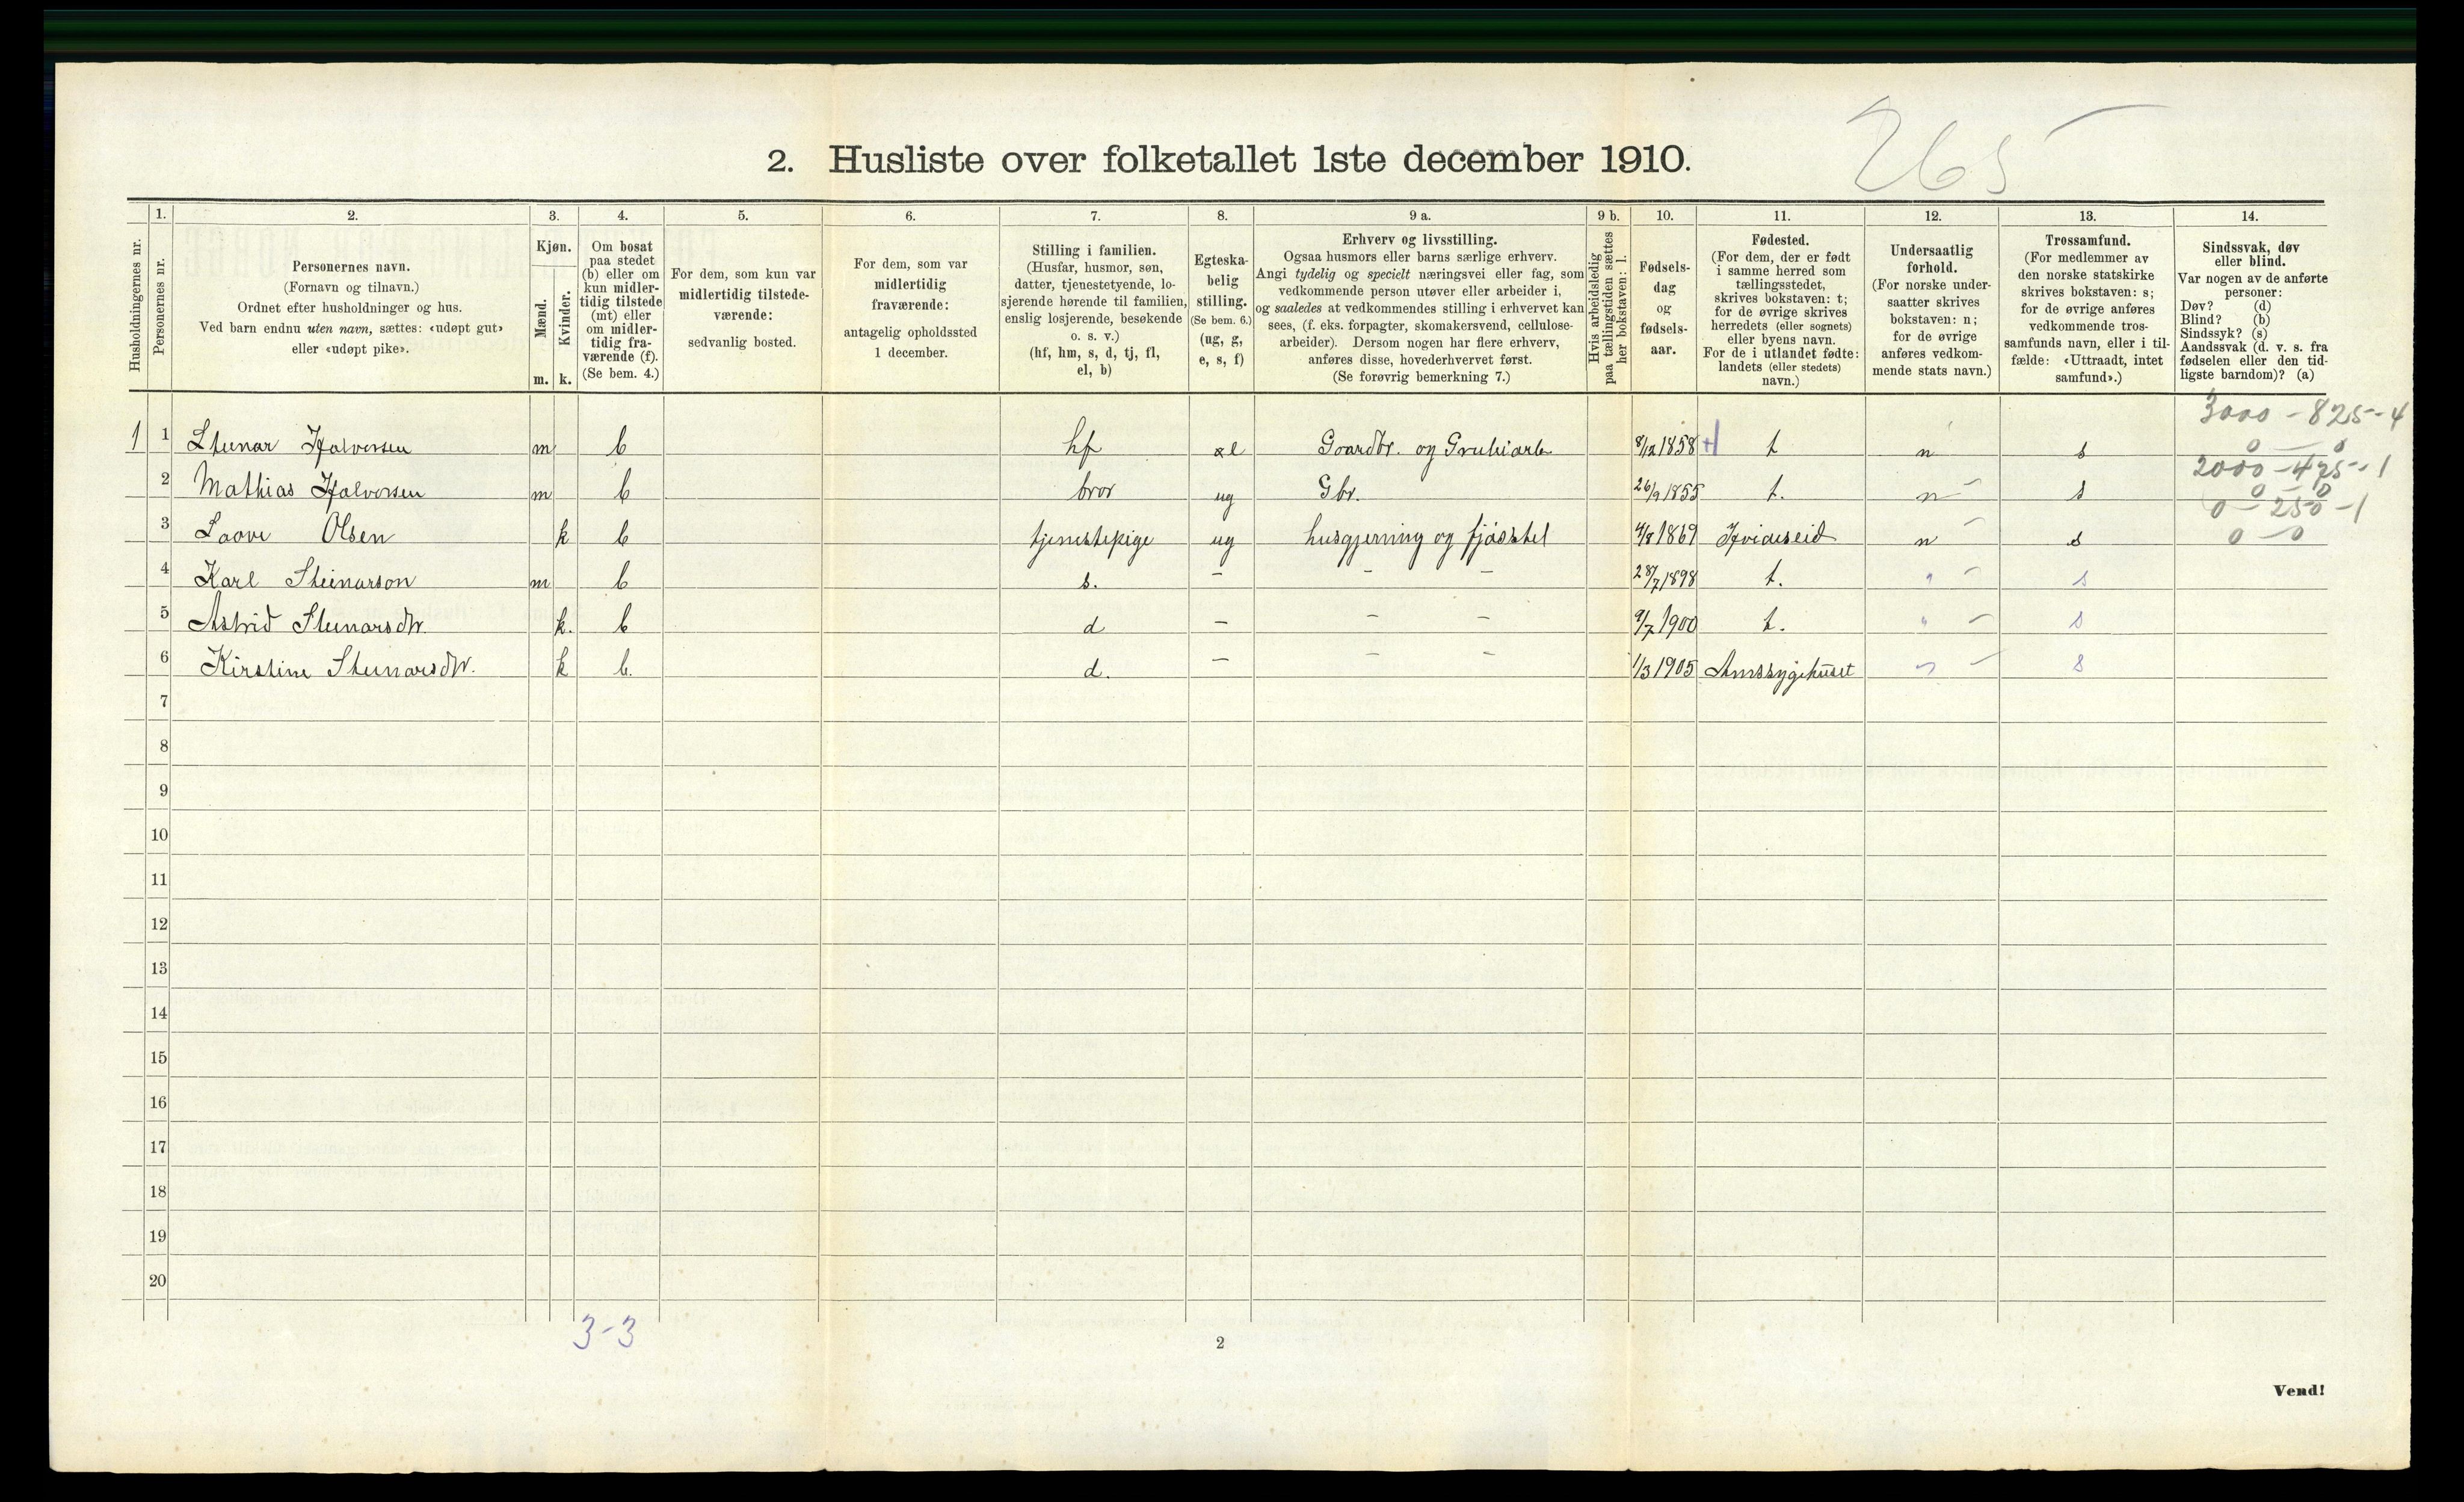 265
2. Husliste over folketallet 1ste december 1910.
1. 2. 3. 4. 5. 6. 7. 8. 9 a. 9 b. 10. 11. 12. 13. 14.
Husholdningernes nr.
Personernes nr.
Personernes navn.
(Fornavn og tilnavn.)
Ordnet efter husholdninger og hus.
Ved barn endnu uten navn, sættes: «udøpt gut»
eller «udøpt pike».
Kjøn.
Mænd.
Kvinder.
m. k.
Om bosat
paa stedet
(b) eller om
kun midler-
tidig tilstede
(mt) eller
om midler-
tidig fra-
værende (f).
(Se bem. 4.)
For dem, som kun var
midlertidig tilstede-
værende:
sedvanlig bosted.
For dem, som var
midlertidig
fraværende:
antagelig opholdssted
1 december.
Stilling i familien.
(Husfar, husmor, søn,
datter, tjenestetyende, lo-
sjerende hørende til familien,
enslig losjerende, besøkende
o. s. v.)
(hf, hm, s, d, tj, fl,
el, b)
Egteska-
belig
stilling.
(Se bem. 6.)
(ug, g,
e, s, f)
Erhverv og livsstilling.
Ogsaa husmors eller barns særlige erhverv.
Angi tydelig og specielt næringsvei eller fag, som
vedkommende person utøver eller arbeider i,
og saaledes at vedkommendes stilling i erhvervet kan
sees, (f. eks. forpagter, skomakersvend, cellulose-
arbeider). Dersom nogen har flere erhverv,
anføres disse, hovederhvervet først.
(Se forøvrig bemerkning 7.)
Hvis arbeidsledig
paa tællingstiden sættes
her bokstaven: l.
Fødsels-
dag
og
fødsels-
aar.
Fødested.
(For dem, der er født
i samme herred som
tællingsstedet,
skrives bokstaven: t;
for de øvrige skrives
herredets (eller sognets)
eller byens navn.
For de i utlandet fødte:
landets (eller stedets)
navn.)
Undersaatlig
forhold.
(For norske under-
saatter skrives
bokstaven: n;
for de øvrige
anføres vedkom-
mende stats navn.)
Trossamfund.
(For medlemmer av
den norske statskirke
skrives bokstaven: s;
for de øvrige anføres
vedkommende tros-
samfunds navn, eller i til-
fælde: «Uttraadt, intet
samfund».)
Sindssvak, døv
eller blind.
Var nogen av de anførte
personer:
Døv? (d)
Blind? (b)
Sindssyk? (s)
Aandssvak (d. v. s. fra
fødselen eller den tid-
ligste barndom)? (a)
3000 - 825 - 4
1 1 Steinar Halvorsen m b hf Gaardbr. og 8/12 1858 t n s 0 - 0
2000 - 425 - 1
2 Mathias Halvorsen m b bror ug Gbr. 26/9 1855 t. n s 0 - 0
0 - 250 - 1
3 Laave Olsen k b tjenestepige ug husgjerning og fjøsstel 4/8 1869 Hvideseid n s 0 - 0
4 Karl Steinarson m b s. - - - 28/7 1898 t. " s
5 Astrid Steinarsdtr. k. b d - - - 9/7 1900 t. " s
6 Kirstine Steinarsdtr. k b. d. - - - 1/3 1905 Amssygehuset " s
7
8
9
10
11
12
13
14
15
16
17
18
19
20
3-3
2
Vend!